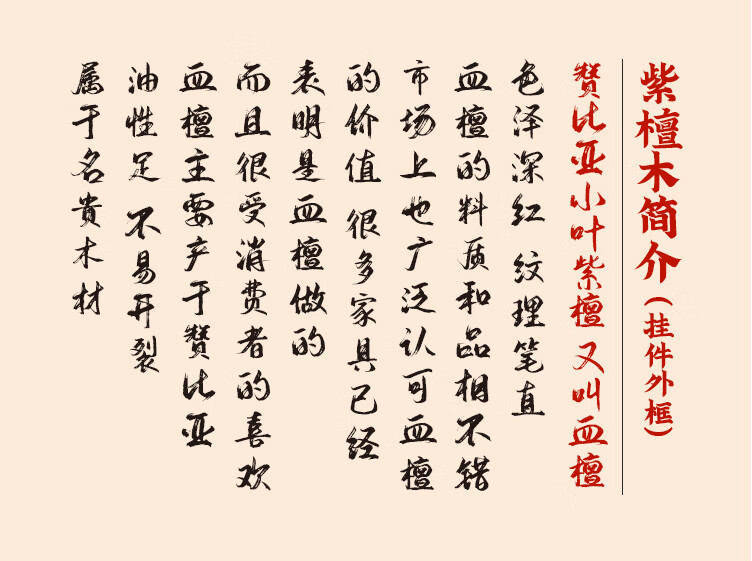 紫檀木简介(挂件外框)
赞比亚小叶紫檀 又叫血檀
色泽深红 纹理笔直
血檀的料质和品相不错
市场上也广泛认可血檀
的价值 很多家具已经
表明是血檀做的
而且很受消费者的喜欢
血檀主要产于赞比亚
油性足 不易开裂
属于名贵木材